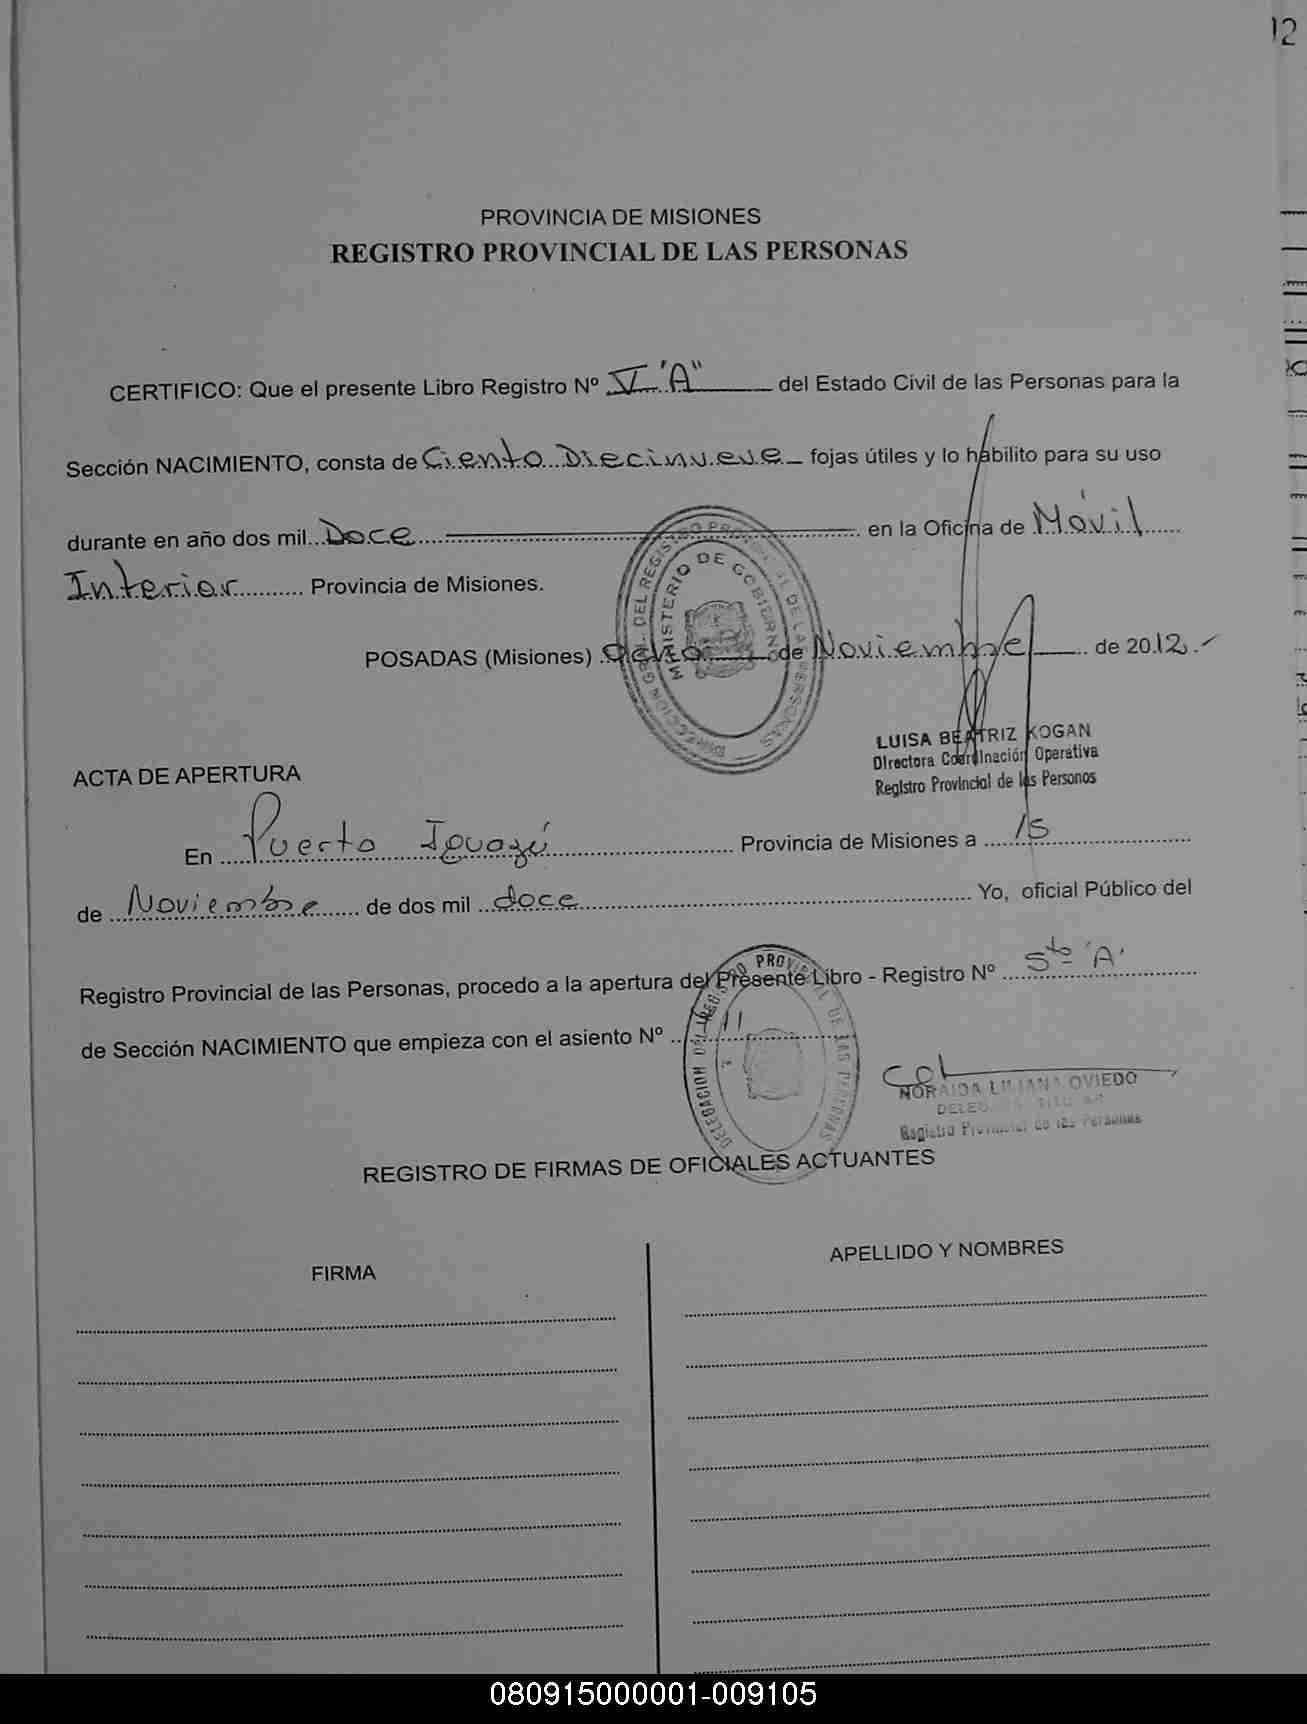 12
PROVINCIA DE MISIONES
REGISTRO PROVINCIAL DE LAS PERSONAS
CERTIFICO: Que el presente Libro Registro Nº V "A" del Estado Civil de las Personas para la
Sección NACIMIENTO, consta de Ciento Diecinueve fojas útiles y lo habilito para su uso
durante en año dos mil Doce en la Oficina de Móvil
Interior Provincia de Misiones.
POSADAS (Misiones) Ocho de Noviembre de 2012.-
DIRECCION GRAL. DEL REGISTRO PROVINCIAL DE LAS PERSONAS
MINISTERIO DE GOBIERNO
LUISA BEATRIZ KOGAN
Directora Coordinación Operativa
Registro Provincial de las Personas
ACTA DE APERTURA
En Puerto Iguazú Provincia de Misiones a 15
de Noviembre de dos mil doce Yo, oficial Público del
Registro Provincial de las Personas, procedo a la apertura del Presente Libro - Registro Nº 5to "A"
de Sección NACIMIENTO que empieza con el asiento Nº 11
DELEGACION DEL REGISTRO PROVINCIAL DE LAS PERSONAS
NORAIDA LILIANA OVIEDO
Registro Provincial de las Personas
REGISTRO DE FIRMAS DE OFICIALES ACTUANTES
FIRMA
APELLIDO Y NOMBRES
080915000001-009105